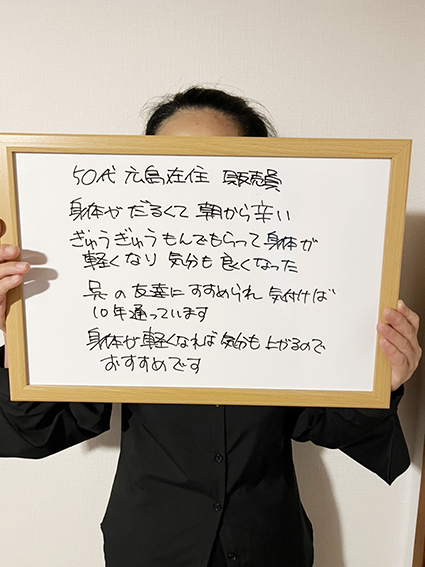 50代 広島在住 販売員
身体がだるくて 朝から辛い
ぎゅうぎゅうもんでもらって身体が
軽くなり 気分も良くなった
呉の友達にすすめられ 気付けば
10年通っています
身体が軽くなれば気分も上がるので
おすすめです